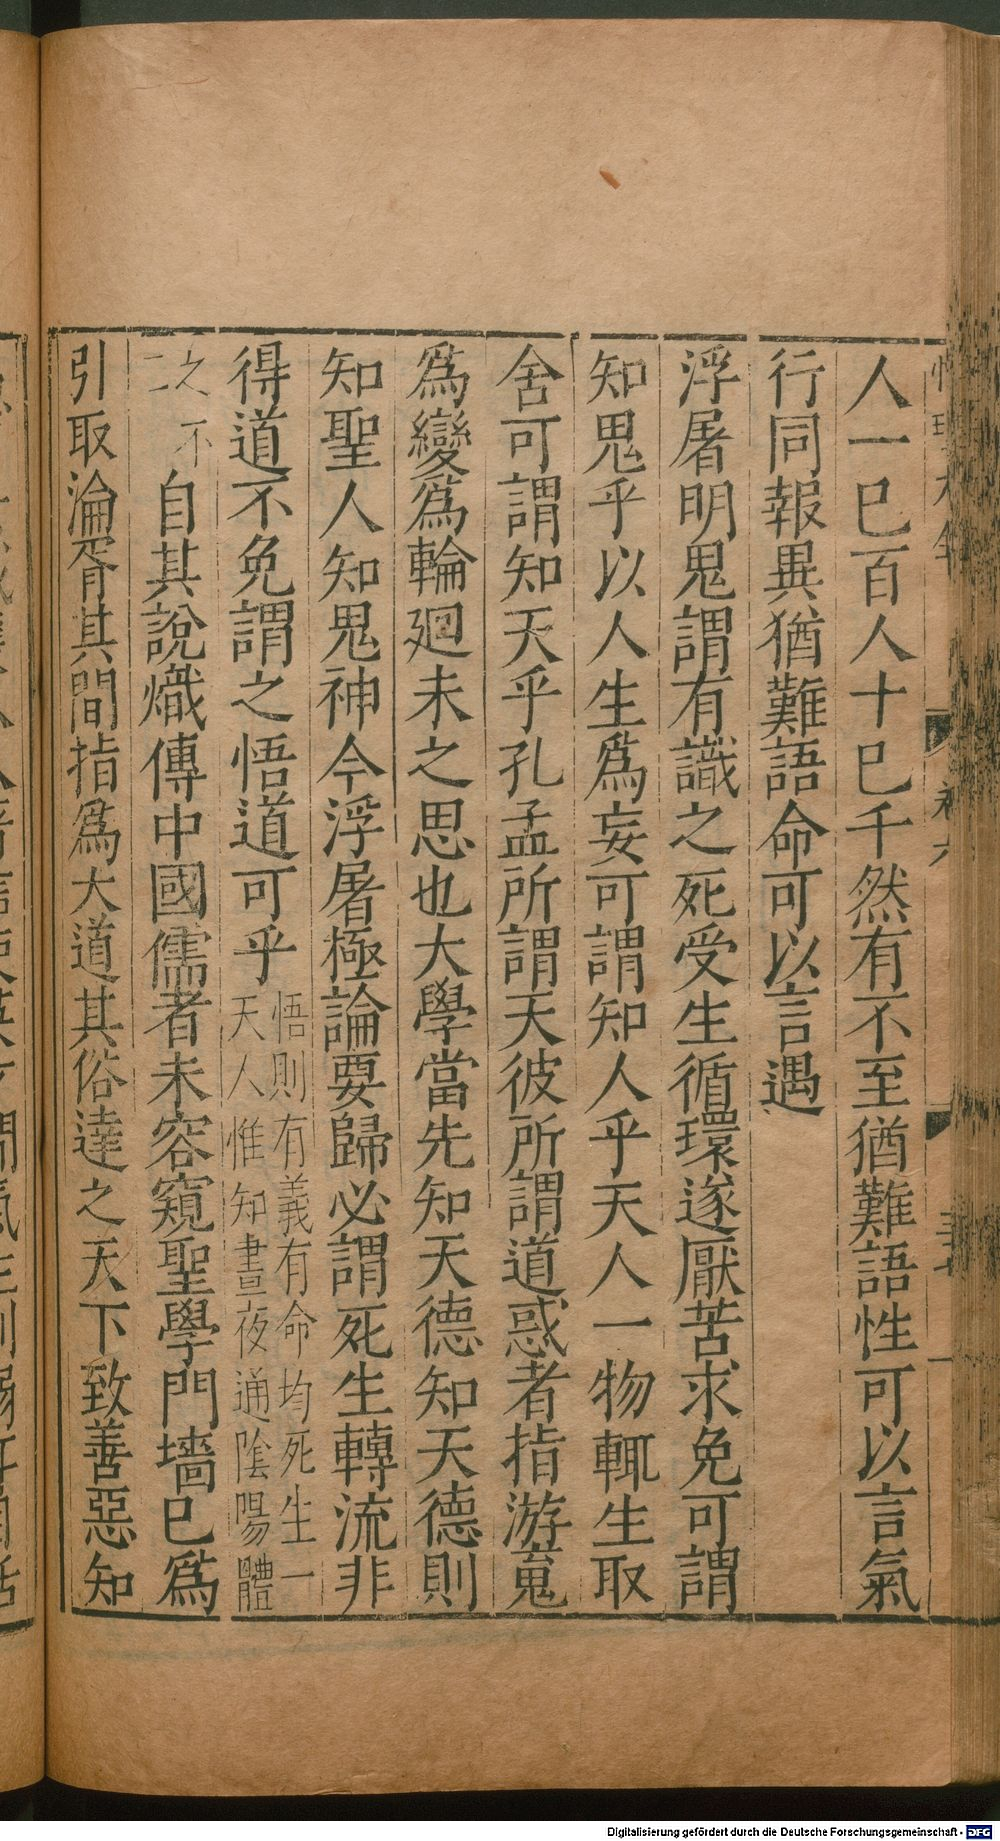 人一己百人十己千然有不至猶難語性可以言氣
行同報異猶難語命可以言遇
浮屠明鬼謂有識之死受生循環遂厭苦求免可謂
知鬼乎以人生爲妄可謂知人乎天人一物輒生取
舍可謂知天乎孔孟所謂天彼所謂道惑者指游䰟
爲變爲輪廻未之思也大學當先知天德知天德則
知聖人知鬼神今浮屠極論要歸必謂死生轉流非
得道不免謂之悟道可乎
悟則有義有命均死生一
天人惟知晝夜通隂陽體
之不
二
自其說熾傳中國儒者未容窺聖學門墻已爲
引取淪胥其間指爲大道其俗達之天下致善惡知
Digitalisierung gefördert durch die Deutsche Forschungsgemeinschaft - DFG